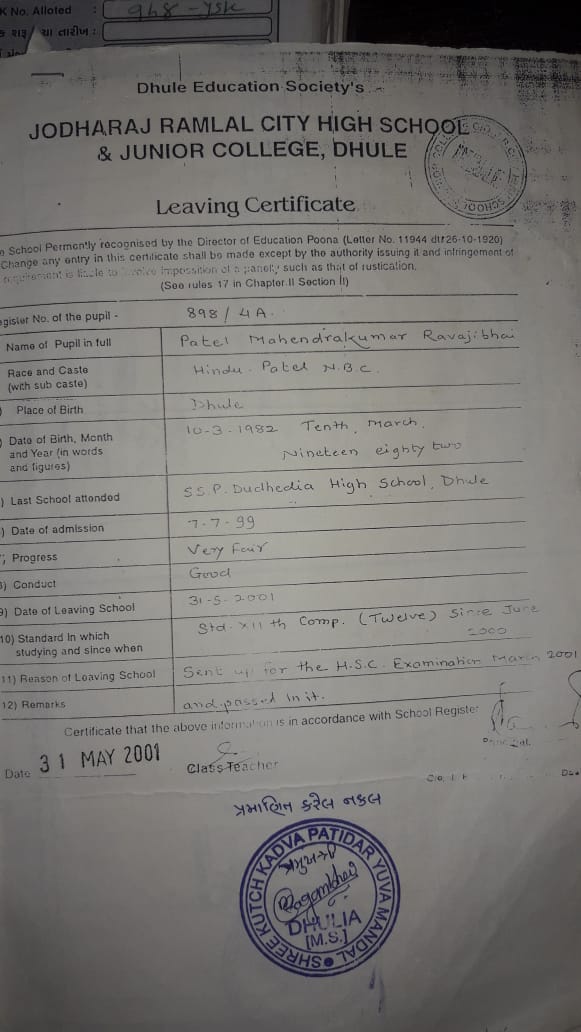 K No. Alloted : 968 - YSK
શરૂ થા તારીખ :
Dhule Education Society's
JODHARAJ RAMLAL CITY HIGH SCHOOL
& JUNIOR COLLEGE, DHULE
Leaving Certificate
School Permently recognised by the Director of Education Poona (Letter No. 11944 dtr26-10-1920)
Change any entry in this certificate shall be made except by the authority issuing it and infringement of
requirement is liable to involve impossition of a panelty such as that of rustication.
(See rules 17 in Chapter II Section II)
egister No. of the pupil - 898/4A.
Name of Pupil in full Patel Mahendrakumar Ravajibhai
Race and Caste Hindu. Patel N.B.C.
(with sub caste)
Place of Birth Dhule
Date of Birth, Month 10-3-1982 Tenth, March,
and Year (in words Nineteen eighty two
and figures)
) Last School attended S.S.P. Dudhedia High School, Dhule
) Date of admission 7-7-99
Progress Very Fair
) Conduct Good
9) Date of Leaving School 31-5-2001
10) Standard in which Std. XII th Comp. (Twelve) Since June
studying and since when 2000
11) Reason of Leaving School Sent up for the H.S.C. Examination March 2001
12) Remarks and passed in it.
Certificate that the above information is in accordance with School Register
Date 31 MAY 2001 Class Teacher Principal.
પ્રમાણિત કરેલ નકલ
SHREE KUTCH KADVA PATIDAR YUVA MANDAL
પ્રમુખશ્રી
DHULIA
[M.S.]